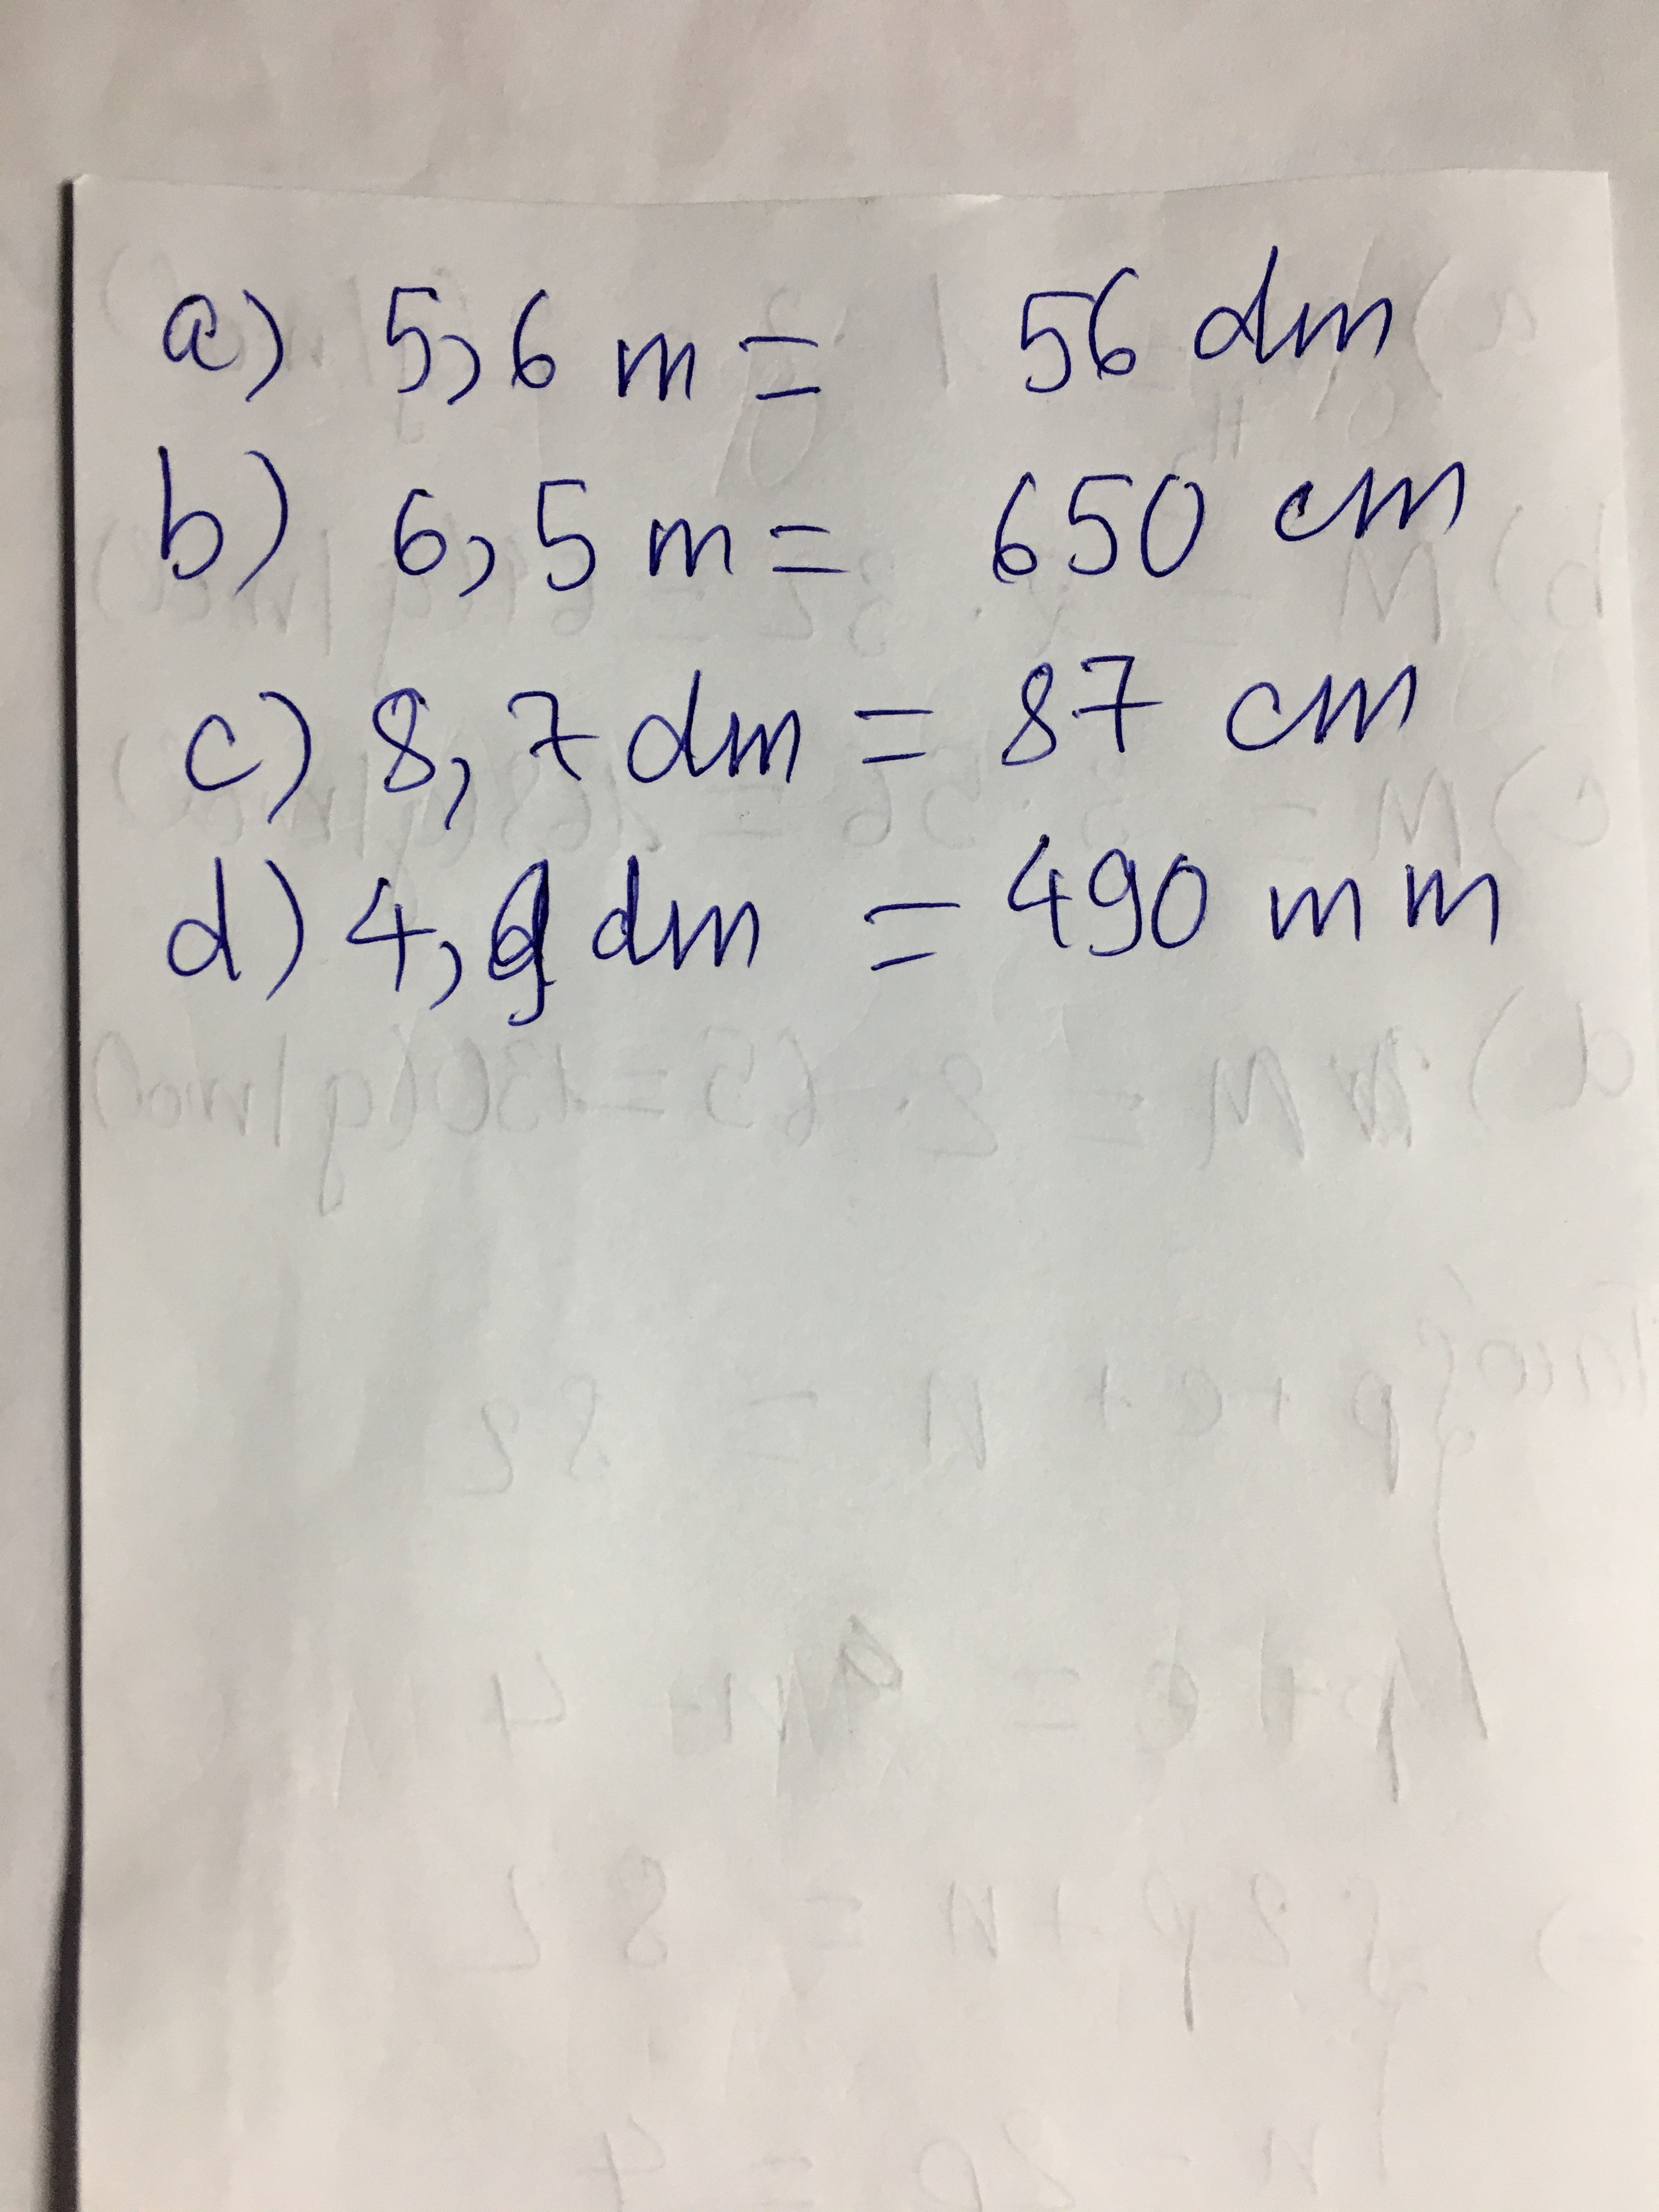 a) 5,6 m = 56 dm
b) 6,5 m = 650 cm
c) 8,7 dm = 87 cm
d) 4,9 dm = 490 mm